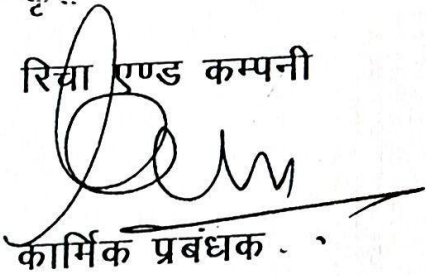 रिचा एण्ड कम्पनी
कार्मिक प्रबंधक